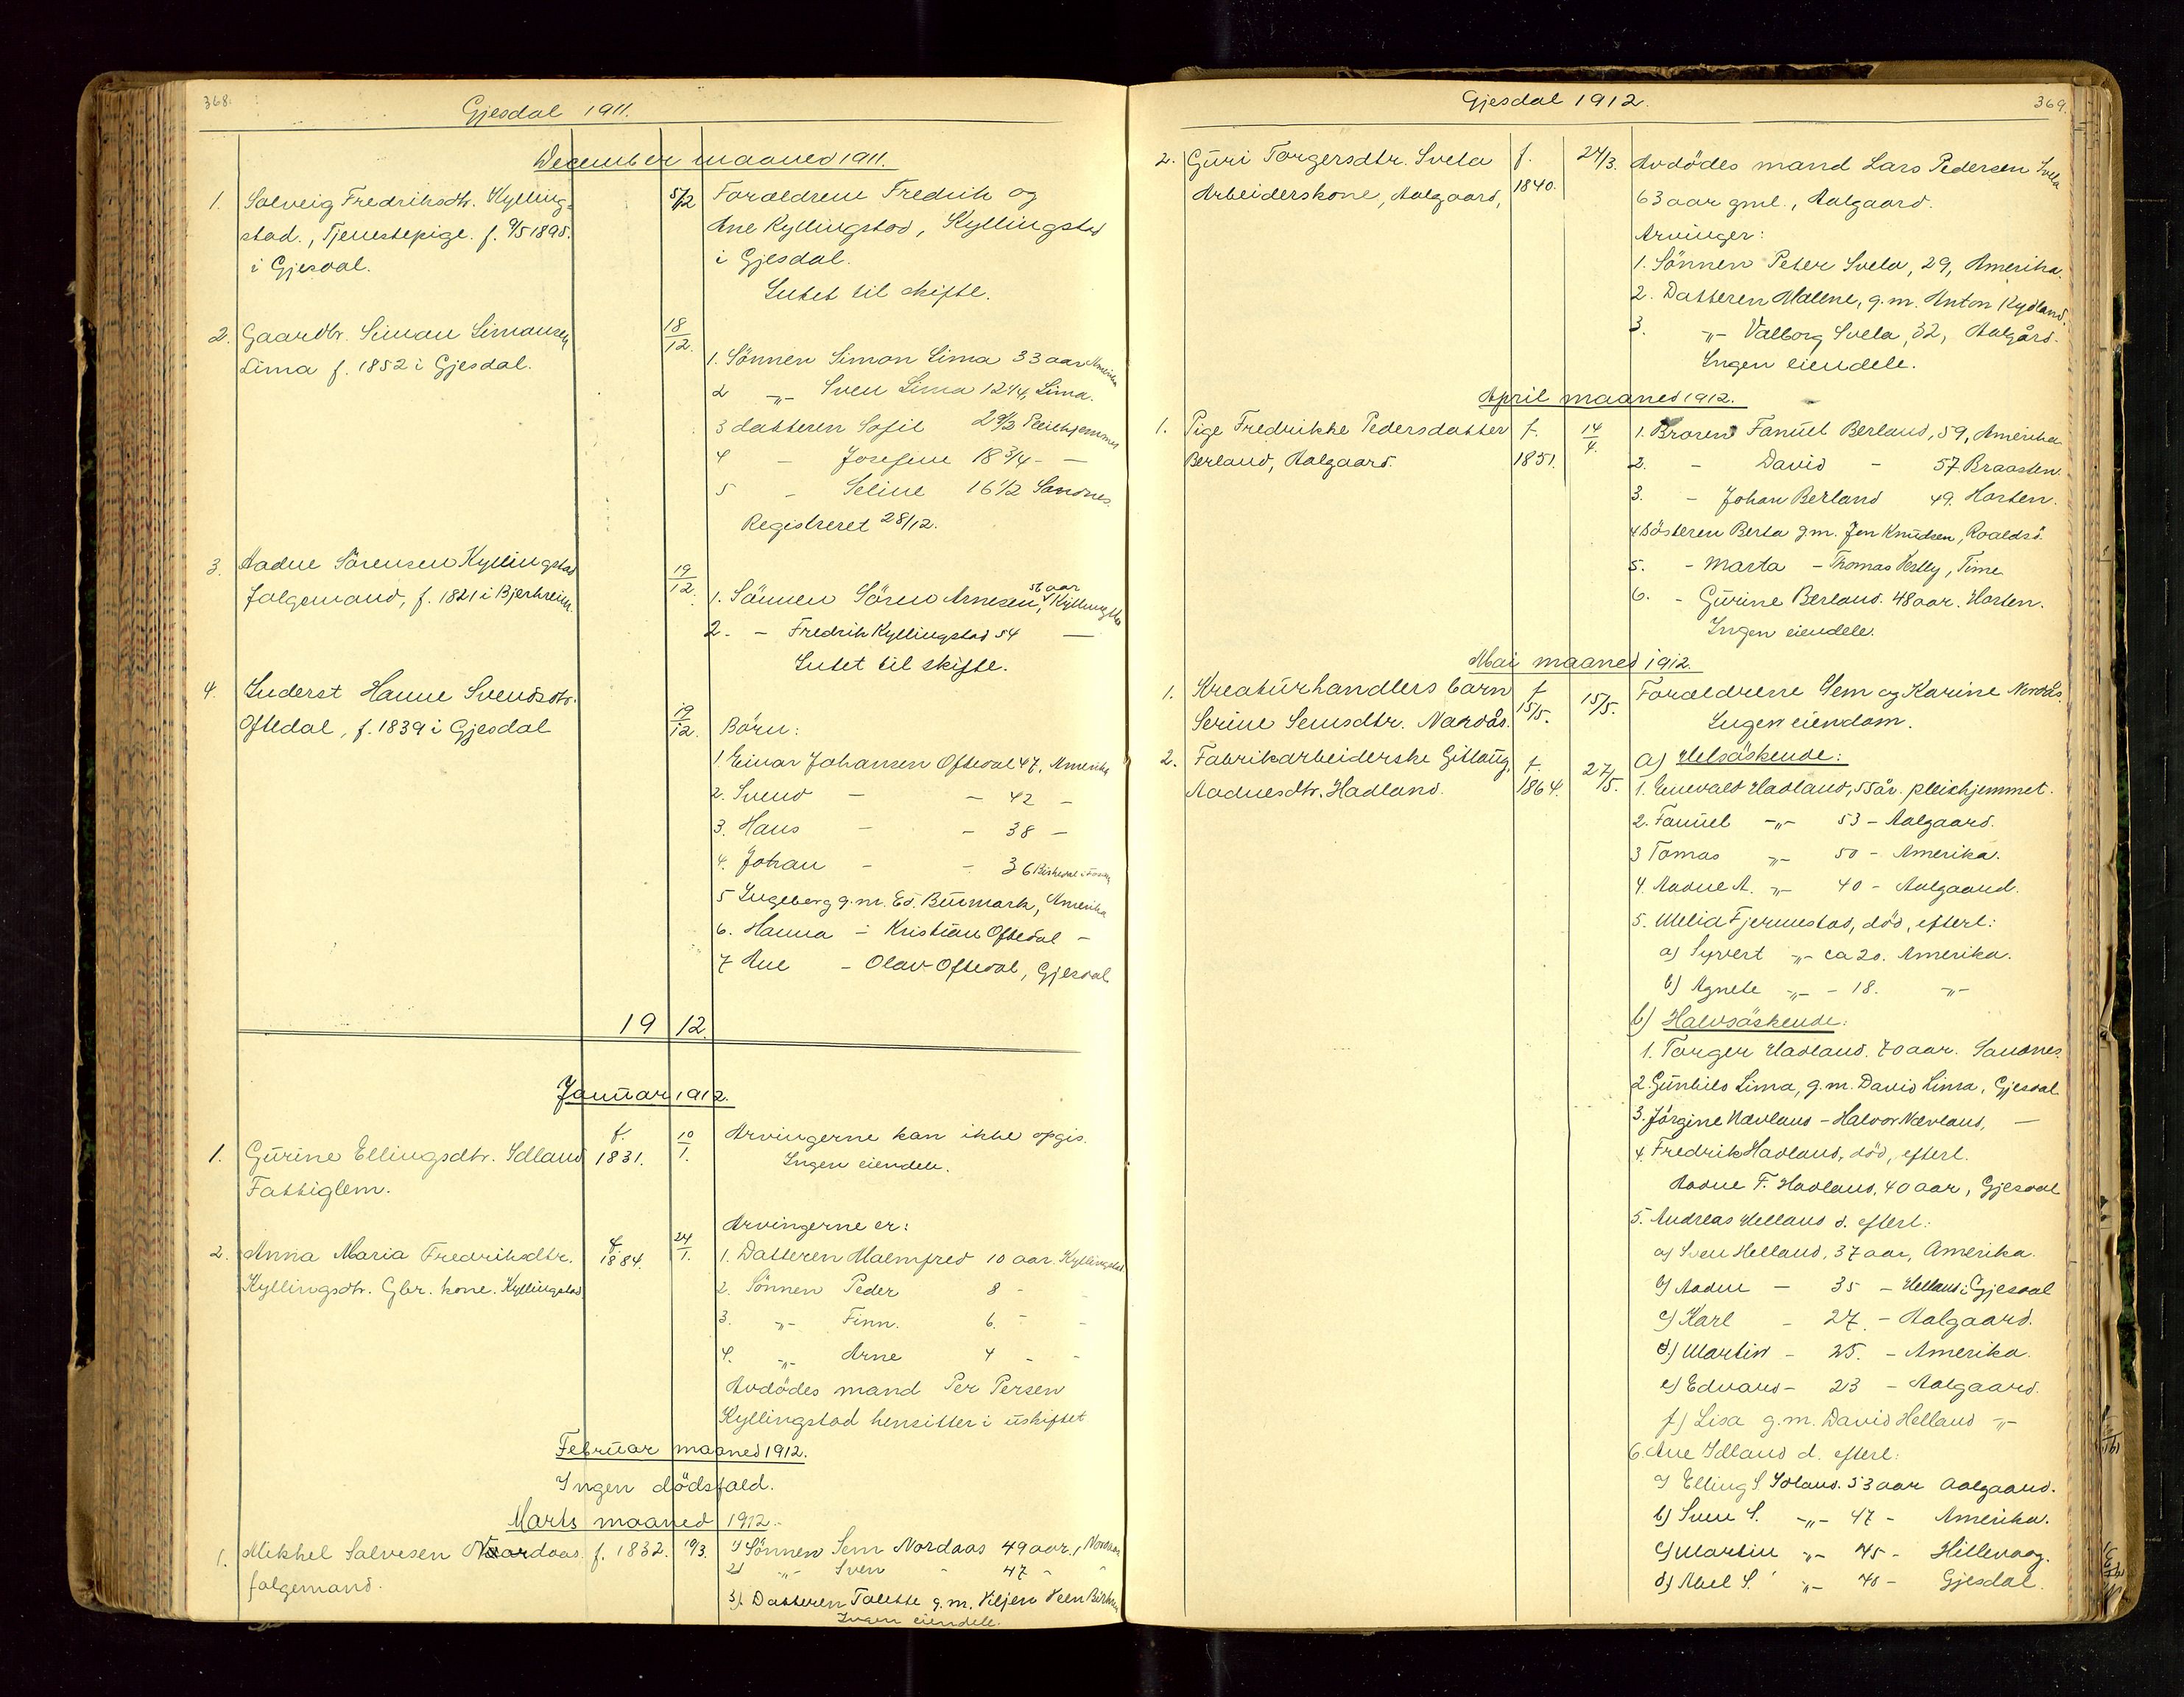 368.
Gjesdal 1911.
December maaned 1911.
1. Solveig Fredriksdtr. Kylling-
stad., Tjenestepige. f. 9/5 1895.
i Gjesdal.
5/12 Foraeldrene Fredrik og
Ane Kyllingstad, Kyllingstad
i Gjesdal.
Intet til skifte.
2. Gaardbr. Simon Simonsen
Lima f. 1852 i Gjesdal.
18/12.
1. Sönnen Simon Lima 33 aar Amerika
2 -"- Sven Lima 12 1/4, Lima.
3 datteren Sofie 29 1/2 Pleiehjemmet
4 - Josefine 18 3/4 - -
5 - Seline 16 1/2 Sandnes.
Registreret 28/12.
3. Aadne Sörensen Kyllingstad
Folgemand, f. 1821 i Bjerkreim.
19/12.
1. Sönnen Sören Arnesen, 56 aar Kyllingstad
2. - Fredrik Kyllingstad 54 -
Intet til skifte.
4. Inderst Hanne Svendsdtr.
Oftedal, f. 1839 i Gjesdal
19/12. Börn:
1. Einar Johansen Oftedal 47, Amerika
2. Svend - - 42 -
3. Hans - - 38 -
4. Johan - - 36
5 Ingeborg g.m. Ed. Burmark, Amerika
6. Hanna - Kristian Oftedal -
7 Ane - Olav Oftedal, Gjesdal
1912.
Januar 1912.
1. Gurine Ellingsdtr. Idland
Fattiglem.
f. 1831. 10/1. Arvingerne kan ikke opgis.
Ingen eiendele.
2. Anna Maria Fredriksdtr.
Kyllingsdtr. Gbr. kone. Kyllingstad
f. 1884. 24/1. Arvingerne er:
1. Datteren Malmfred 10 aar. Kyllingstad
2. Sönnen Peder 8 - -
3. -"- Finn. 6. - -
4. -"- Arne 4 - -
Avdödes mand Per Persen
Kyllingstad hensitter i uskiftet
Februar maaned 1912.
Ingen dödsfald.
Marts maaned 1912.
1. Mikkel Salvesen Nordaas
folgemand.
f. 1832. 19/3. 1) Sönnen Sem Nordaas 49 aar,
2) -"- Sven - 47 - "
3). Datteren Tolette g.m. Viljen Veen
Ingen eiendele.
Gjesdal 1912.
369.
2. Guri Torgersdtr. Svela
Arbeiderskone, Aalgaard,
f. 1840. 24/3. Avdödes mand Lars Pedersen Svela
63 aar gml., Aalgaard.
Arvinger:
1. Sönnen Peter Svela, 29, Amerika.
2. Datteren Malene, g.m. Anton Kydland.
3. -"- Valborg Svela, 32, Aalgård.
Ingen eiendele.
April maaned 1912.
1. Pige Fredrikke Pedersdatter
Berland, Aalgaard.
f. 1851. 14/4. 1. Broren Fanuel Berland, 59, Amerika
2. - David - 57 Braasten.
3. - Johan Berland 49. Horten.
4 Sösteren Berta g.m. Jon Knudsen, Roaldsö.
5. - Marta - Thomas Vestly, Time
6. - Gurine Berland. 48 aar. Horten.
Ingen eiendele.
Mai maaned 1912.
1. Kreaturhandlers barn
Serine Semsdtr. Nordås.
f. 15/5. 15/5. Foraeldrene Sem og Karine Nordås.
Ingen eiendom.
2. Fabrikarbeiderske Gitlaug,
Aadnesdtr. Hadland.
f. 1864. 27/5. a) Helsöskende:
1. Enevald Hadland, 55 år. pleiehjemmet.
2. Fanuel -"- 53 - Aalgaard.
3 Tomas -"- 50 - Amerika.
4. Aadne A. -"- 40 - Aalgaard.
5. Melia Fjermestad, död, efterl:
a) Syvert -"- ca 20. Amerika.
b) Agnete -"- - 18. -"-
b) Halvsöskende:
1. Torger Hadland. 70 aar. Sandnes.
2. Gunhild Lima, g.m. David Lima, Gjesdal
3. Jörgine Nævland - Halvor Nævland, -
4. Fredrik Hadland, död, efterl.
Aadne F. Hadland, 40 aar, Gjesdal
5. Andreas Helland d. efterl:
a) Sven Helland, 37 aar, Amerika.
b) Aadne - 35 - Helland i Gjesdal
c) Karl - 27 - Aalgaard.
d) Martin - 25. - Amerika.
e) Edvard - 23 - Aalgaard.
f) Lisa g.m. David Helland -"-
6. Ane Idland d. efterl:
a) Elling S. Idland. 53 aar Aalgaard.
b) Sven S. -"- 47 - Amerika.
c) Martin -"- 45 - Hillevaag.
d) Abel S. -"- 40 - Gjesdal.